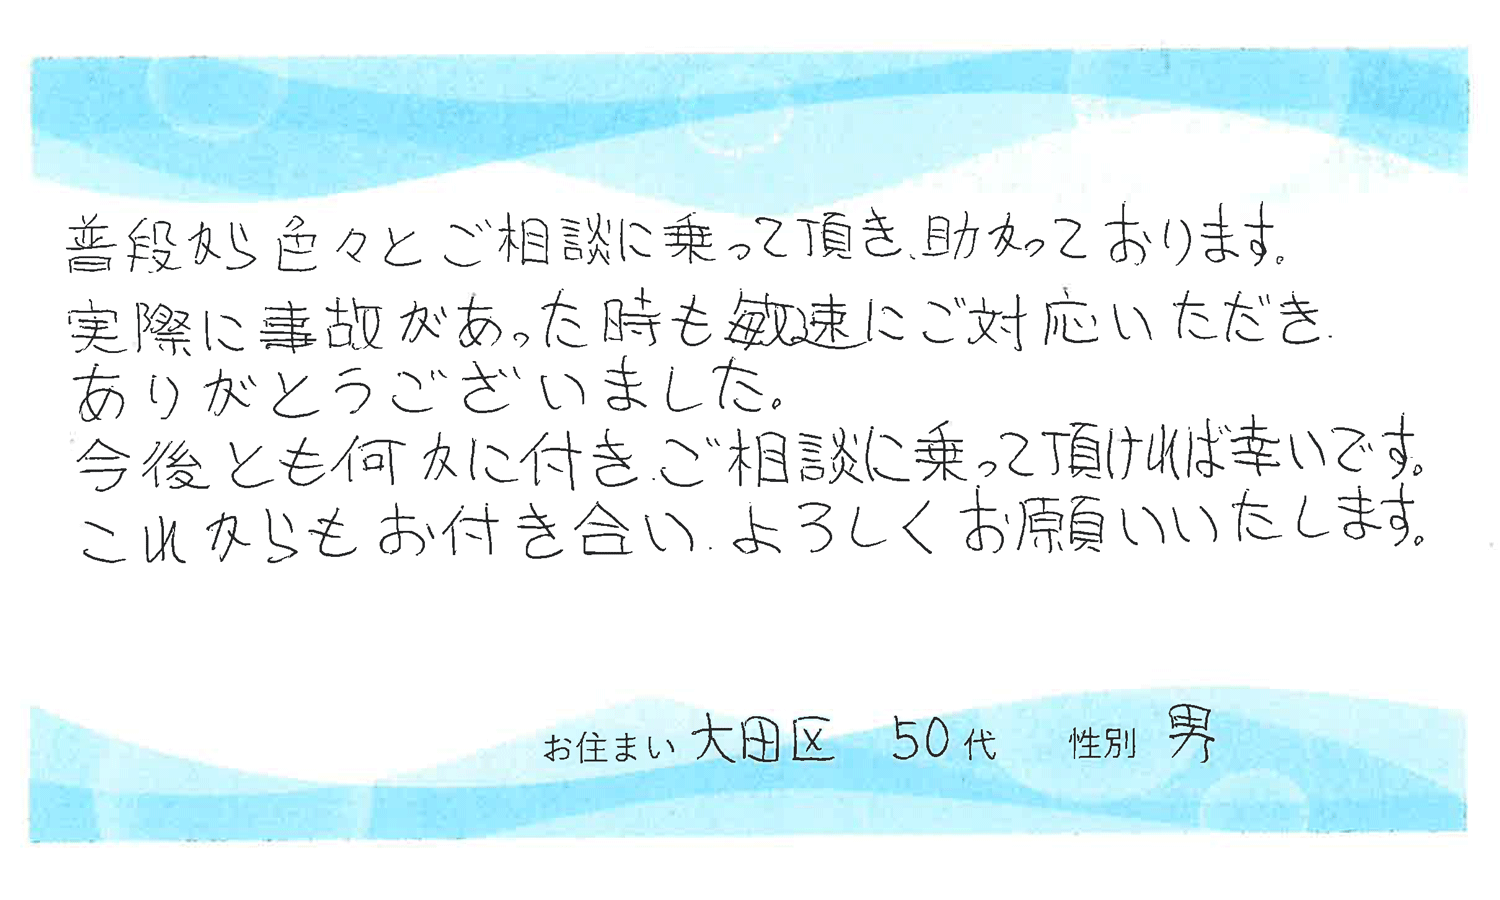 普段から色々とご相談に乗って頂き、助かっております。
実際に事故があった時も敏速にご対応いただき、
ありがとうございました。
今後とも何かに付き、ご相談に乗って頂ければ幸いです。
これからもお付き合い、よろしくお願いいたします。
お住まい 大田区 50代 性別 男